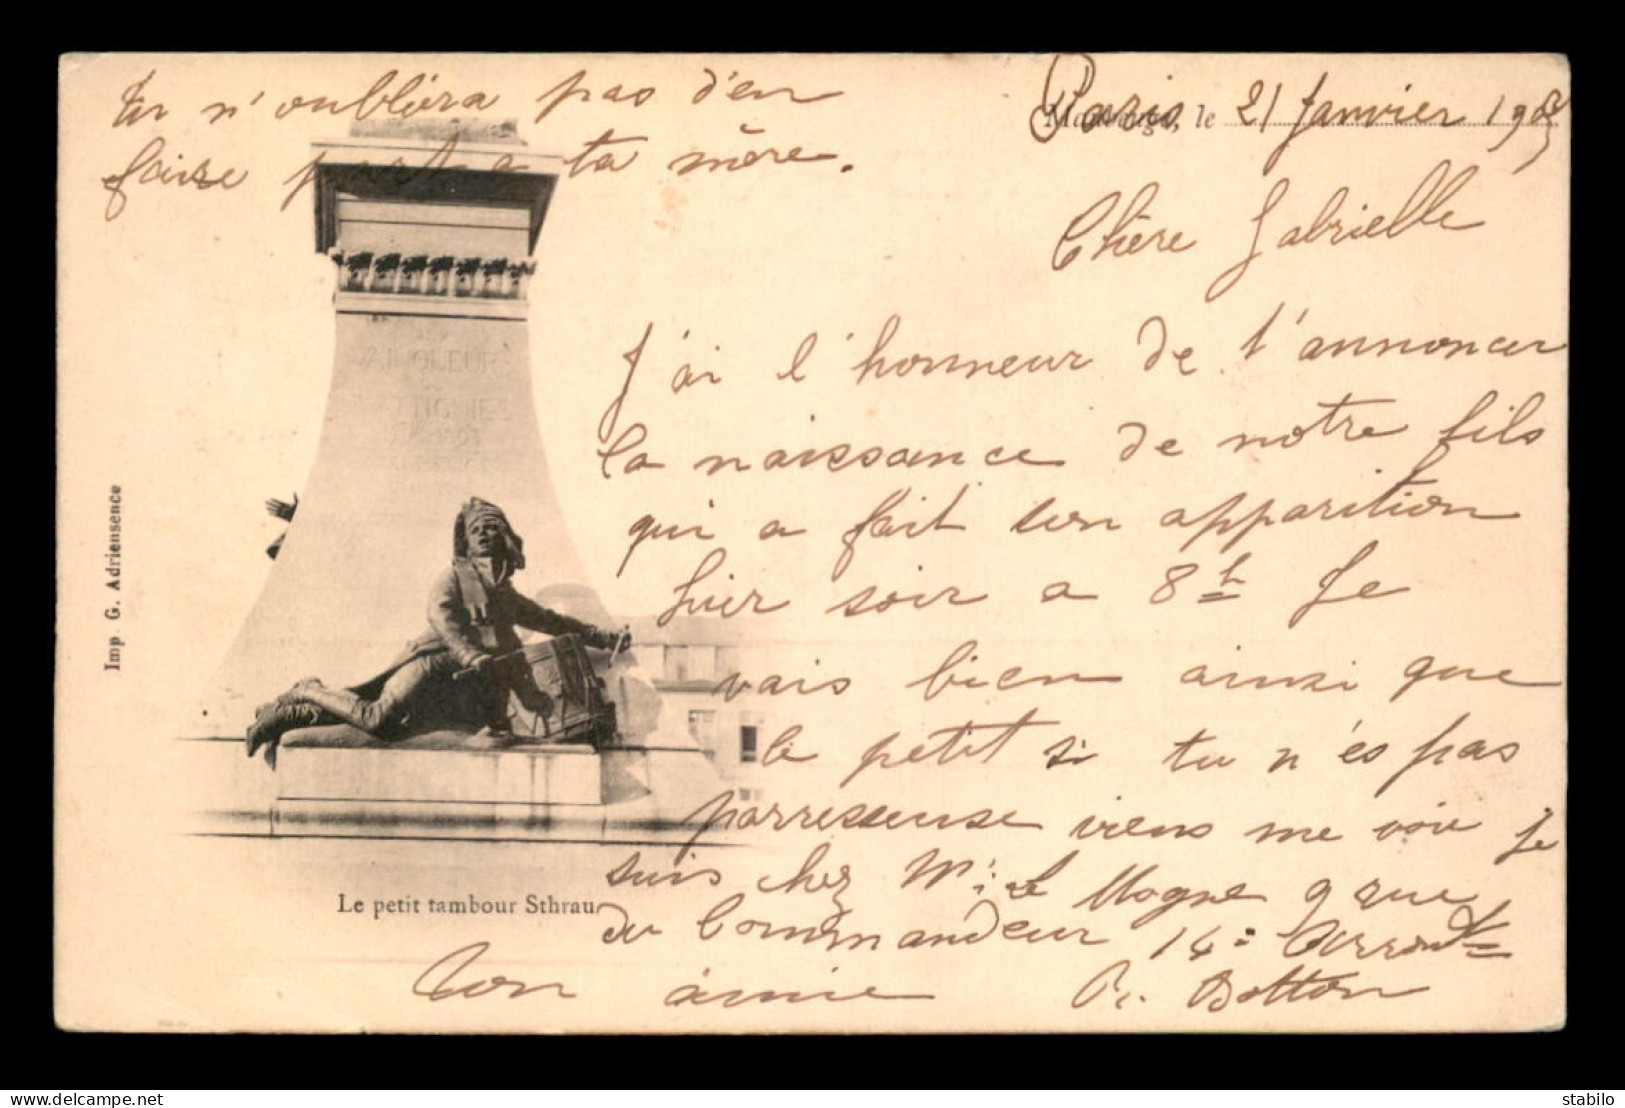 Tu n'oublira pas d'en
faire part a ta mère.
Maubeuge, le
Paris 21 Janvier 190
Chère Gabrielle
J'ai l'honneur de t'annoncer
la naissance de notre fils
qui a fait son apparition
hier soir a 8h Je
vais bien ainsi que
le petit si tu n'és pas
parresseuse viens me voir Je
suis chez Mme Le Mogne 9 rue
du Commandeur 14e Arrondt
Ton amie Botton
VAINQUEURS
WATTIGNIES
Imp. G. Adriensence
Le petit tambour Sthrau
delcampe.net
stabilo